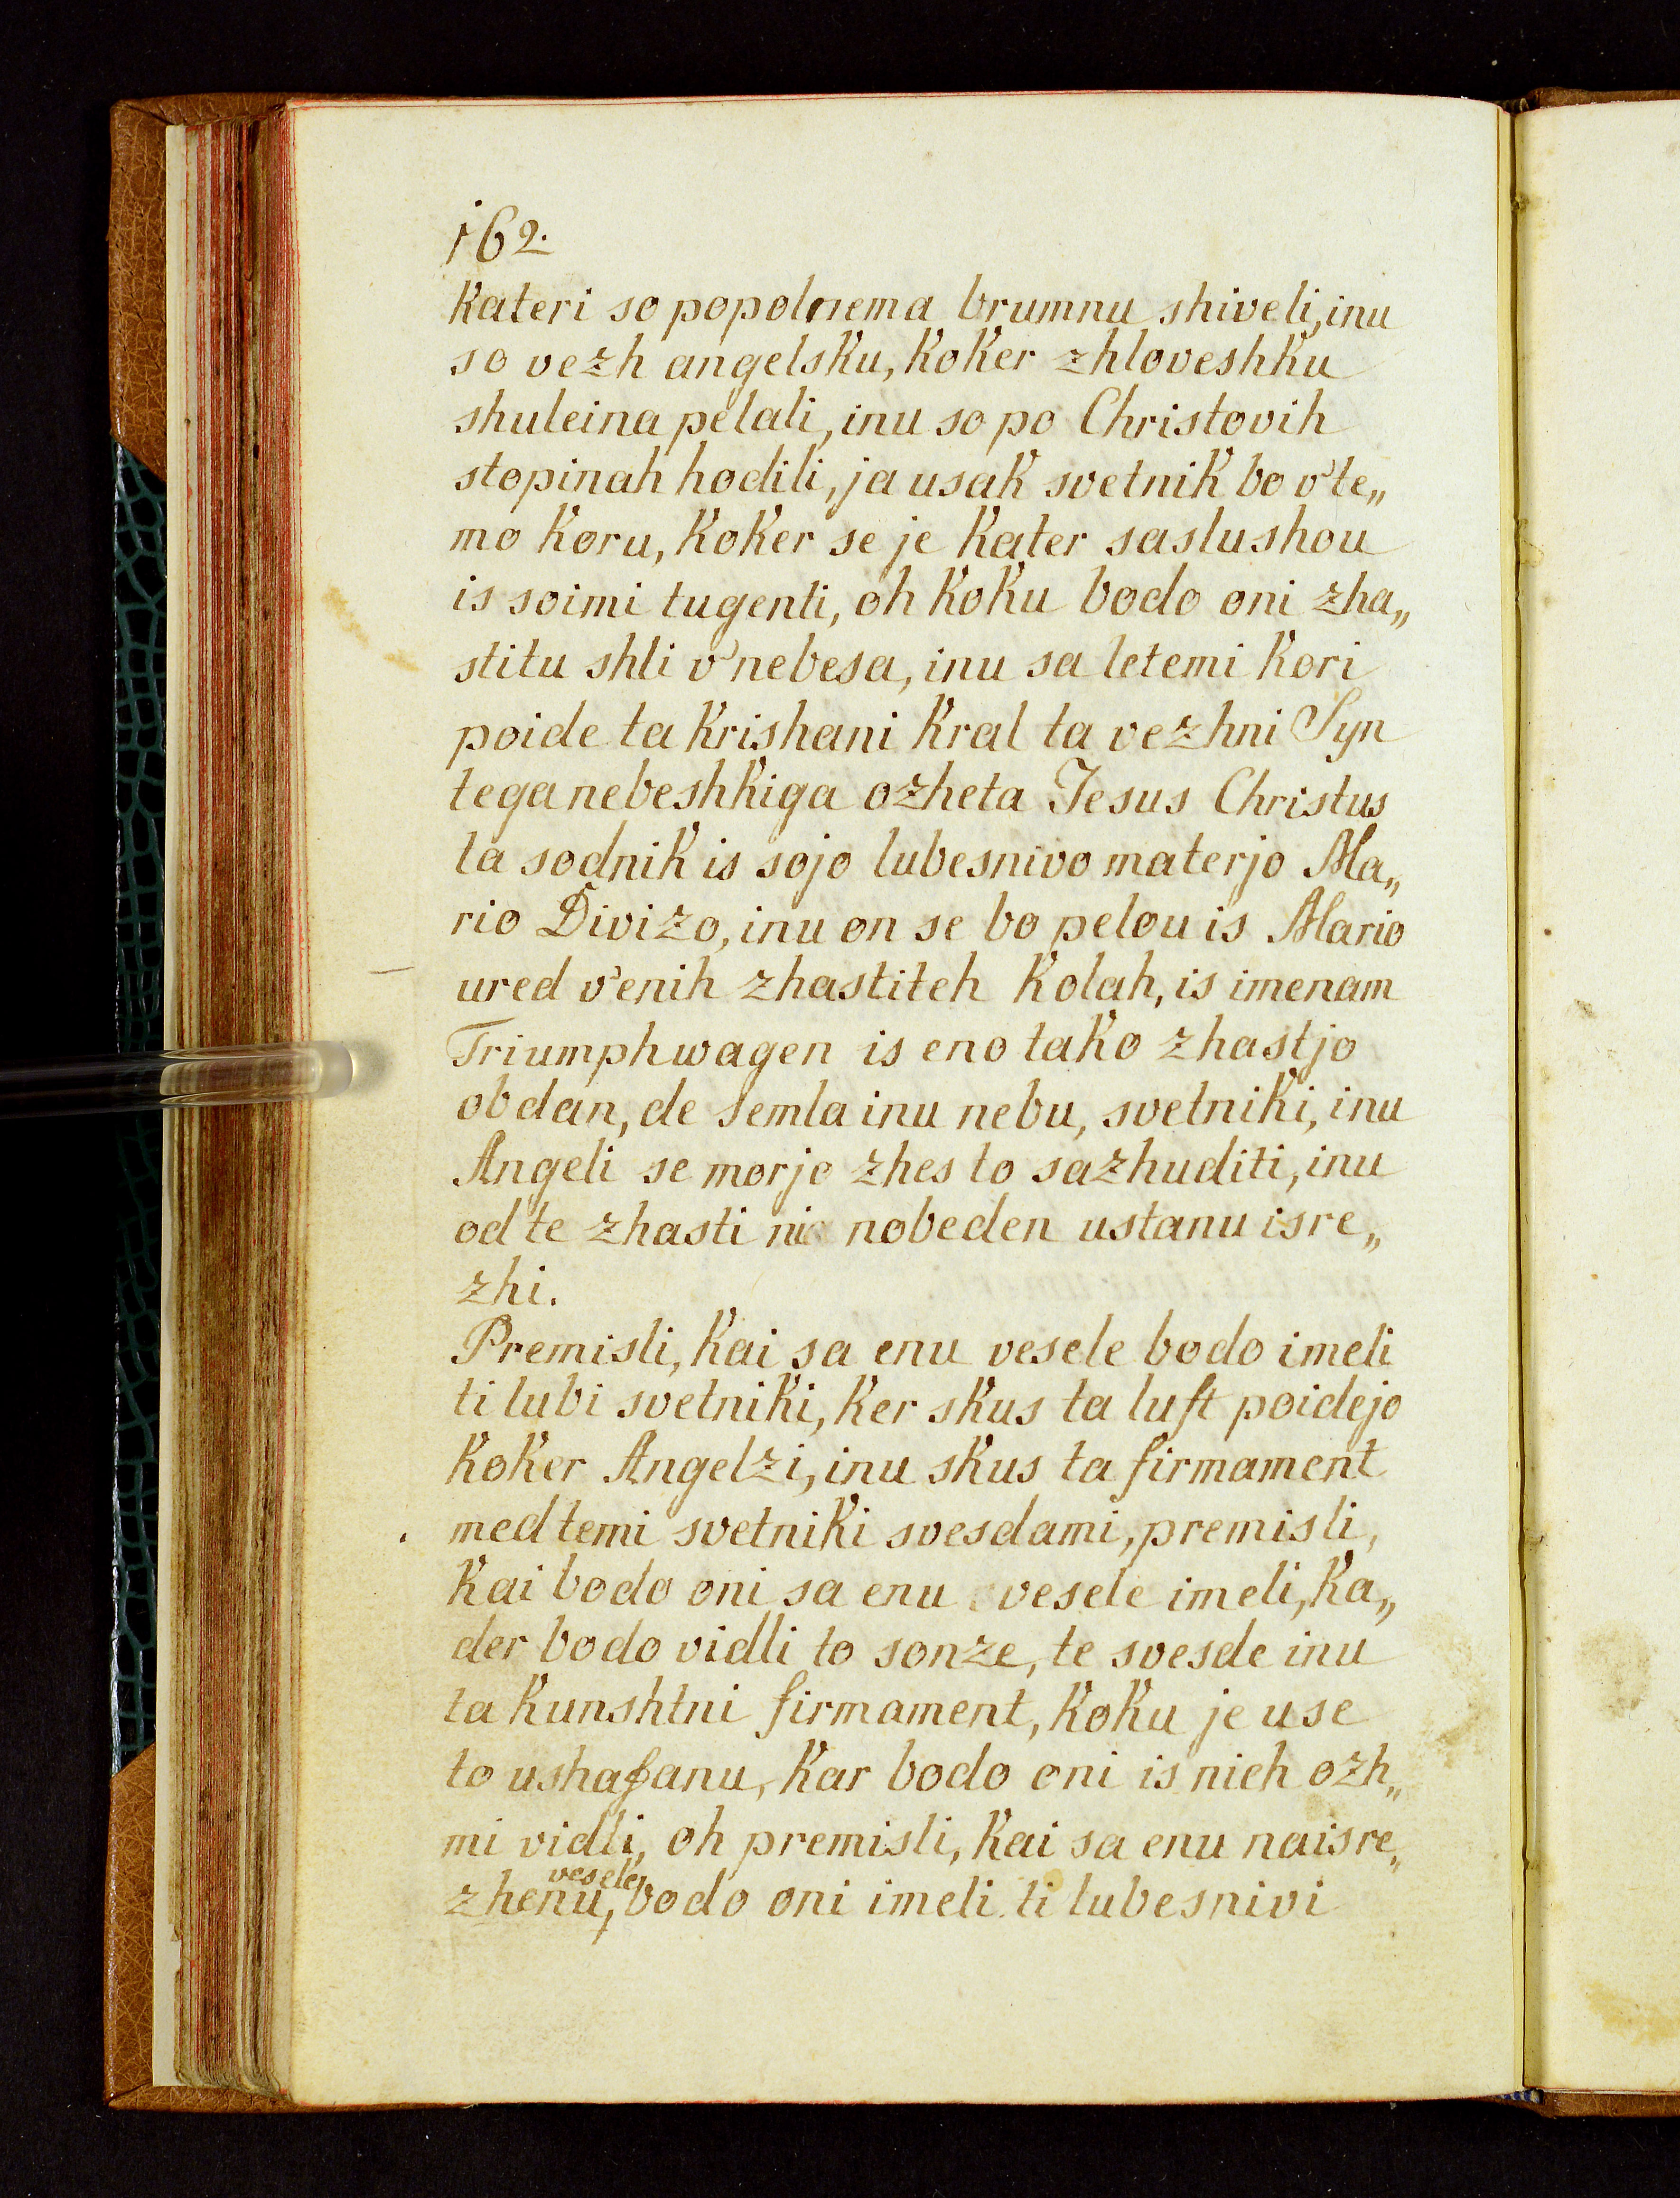 162.
Kateri so popolnema brumnu shiveli, inu
so vezh angelsku, koker zhloveshku
shuleina pelali, inu so po Christovih
stopinah hodili, ja usak svetnik bo v'te„
mo koru, koker se je kater saslushou
is soimi tugenti, oh koku bodo oni zha„
stitu shli v'nebesa, inu sa letemi kori
poide ta krishani kral ta vezhni Syn
tega nebeshkiga ozheta Jesus Christus
ta sodnik is sojo lubesnivo materjo Ma„
rio Divizo, inu on se bo pelou is Mario
ured v'enih zhastiteh kolah, is imenam
Triumphwagen is eno tako zhastjo
obdan, de semla inu nebu, svetniki, inu
Angeli se morjo zhes to sazhuditi, inu
od te zhasti nia nobeden ustanu isre„
zhi.
Premisli, kai sa enu vesele bodo imeli
ti lubi svetniki, ker skus ta luft poidejo
koker Angelzi, inu skus ta firmament
med temi svetniki svesdami, premisli,
kai bodo oni sa enu vesele imeli, ka„
der bodo vidli to sonze, te svesde inu
ta kunshtni firmament, koku je use
to ushafanu, kar bodo oni is nieh ozh„
mi vidli, oh premisli, kai sa enu naisre„
vesele
zhenu, bodo oni imeli ti lubesnivi